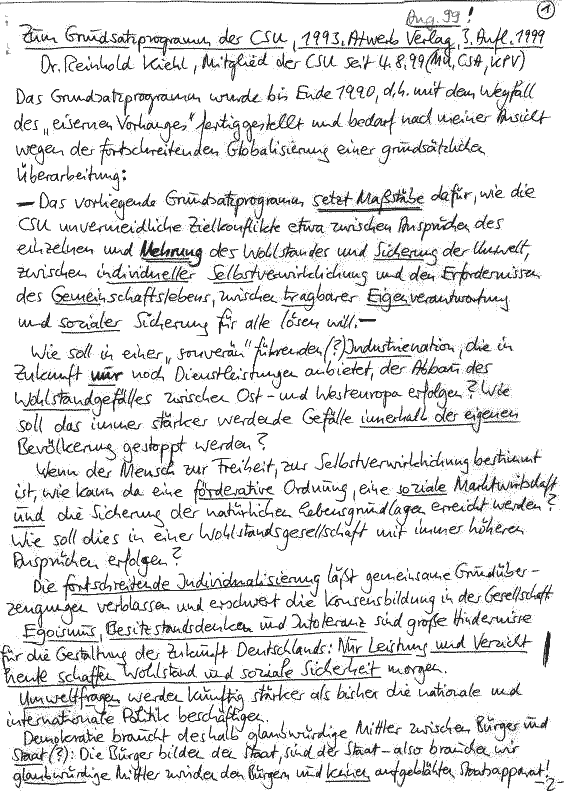 Aug. 99!
1
Zum Grundsatzprogramm der CSU, 1993, Atwerb Verlag, 3. Aufl. 1999
Dr. Reinhold Kiehl, Mitglied der CSU seit 4.8.99 (MU, CSA, KPV)
Das Grundsatzprogramm wurde bis Ende 1990, d.h. mit dem Wegfall
des „eisernen Vorhanges" fertiggestellt und bedarf nach meiner Ansicht
wegen der fortschreitenden Globalisierung einer grundsätzlichen
Überarbeitung:
— Das vorliegende Grundsatzprogramm setzt Maßstäbe dafür, wie die
CSU unvermeidliche Zielkonflikte etwa zwischen Ansprüchen des
einzelnen und Mehrung des Wohlstandes und Sicherung der Umwelt,
zwischen individueller Selbstverwirklichung und den Erfordernissen
des Gemeinschaftslebens, zwischen tragbarer Eigenverantwortung
und sozialer Sicherung für alle lösen will. —
Wie soll in einer „souverän" führenden (?) Industrienation, die in
Zukunft nur noch Dienstleistungen anbietet, der Abbau des
Wohlstandgefälles zwischen Ost- und Westeuropa erfolgen? Wie
soll das immer stärker werdende Gefälle innerhalb der eigenen
Bevölkerung gestoppt werden?
Wenn der Mensch zur Freiheit, zur Selbstverwirklichung bestimmt
ist, wie kann da eine förderative Ordnung, eine soziale Marktwirtschaft
und die Sicherung der natürlichen Lebensgrundlagen erreicht werden?
Wie soll dies in einer Wohlstandsgesellschaft mit immer höheren
Ansprüchen erfolgen?
Die fortschreitende Individualisierung läßt gemeinsame Grundüber-
zeugungen verblassen und erschwert die Konsensbildung in der Gesellschaft
Egoismus, Besitzstandsdenken und Intoleranz sind große Hindernisse
für die Gestaltung der Zukunft Deutschlands: Nur Leistung und Verzicht
heute schaffen Wohlstand und soziale Sicherheit morgen.
Umweltfragen werden künftig stärker als bisher die nationale und
internationale Politik beschäftigen.
Demokratie braucht deshalb glaubwürdige Mittler zwischen Bürger und
Staat (?): Die Bürger bilden den Staat, sind der Staat – also brauchen wir
glaubwürdige Mittler zwischen den Bürgern und keinen aufgeblähten Staatsapparat!
-2-